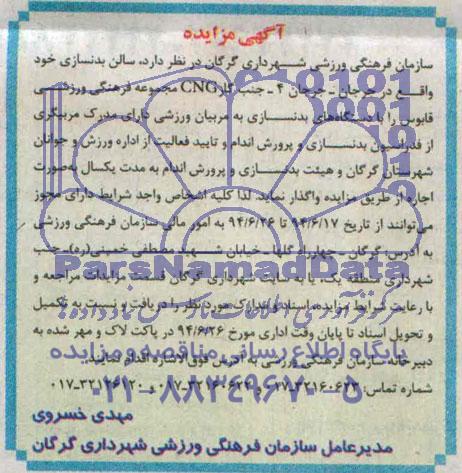 آگهی مزایده
سازمان فرهنگی ورزشی شهرداری گرگان در نظر دارد، سالن بدنسازی خود
واقع در جرجان - جرجان ۴ - جنب گاز CNG مجموعه فرهنگی ورزشی
قابوس را با دستگاههای بدنسازی به مربیان ورزشی دارای مدرک مربیگری
از فدراسیون بدنسازی و پرورش اندام و تایید فعالیت از اداره ورزش و جوانان
شهرستان گرگان و هیئت بدنسازی و پرورش اندام به مدت یکسال بهصورت
اجاره از طریق مزایده واگذار نماید. لذا کلیه اشخاص واجد شرایط دارای مجوز
میتوانند از تاریخ ۹۴/۶/۱۷ تا ۹۴/۶/۲۶ به امور مالی سازمان فرهنگی ورزشی
به آدرس: گرگان - چهارراه گلها - خیابان شهید مصطفی خمینی(ره)- جنب
شهرداری منطقه یک، یا به سایت شهرداری گرگان قسمت مزایدات مراجعه و
با رعایت شرایط مزایده، اسناد و مدارک مورد نظر را دریافت و نسبت به تکمیل
و تحویل اسناد تا پایان وقت اداری مورخ ۹۴/۶/۲۶ در پاکت لاک و مهر شده به
دبیرخانه سازمان فرهنگی ورزشی به آدرس فوق الاشاره اقدام نمایند.
شماره تماس:
مهدی خسروی
مدیرعامل سازمان فرهنگی ورزشی شهرداری گرگان
ParsNamadData
پایگاه اطلاع رسانی مناقصه و مزایده
۰۲۱-۸۸۳۴۹۶۷۰-۵